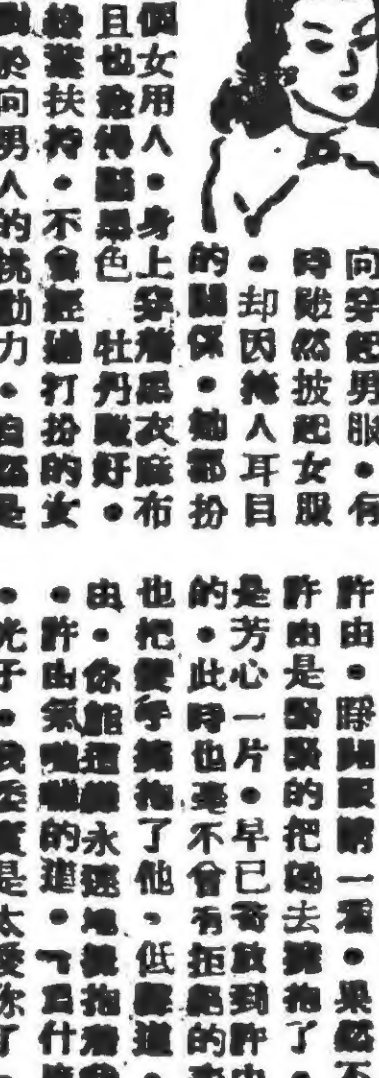 向穿起男服。有
時雖然披起女服
。却因掩人耳目
的關係。她都扮
個女用人。身上穿着黑衣麻布
且也染得黑色 牡丹雖好。
綠葉扶持。不會經過打扮的女
於向男人的挑動力。自然是
許由。睜開眼睛一看。果然不
許由是緊緊的把她去擁抱了。
是芳心一片。早已寄放到許由
的。此時也毫不曾有拒絕的
也把雙手擁抱了他。低聲道
由。你能這樣永遠地擁抱着我
。許由氣喘喘的道。「爲什麼
。光于。我委實是太愛你了